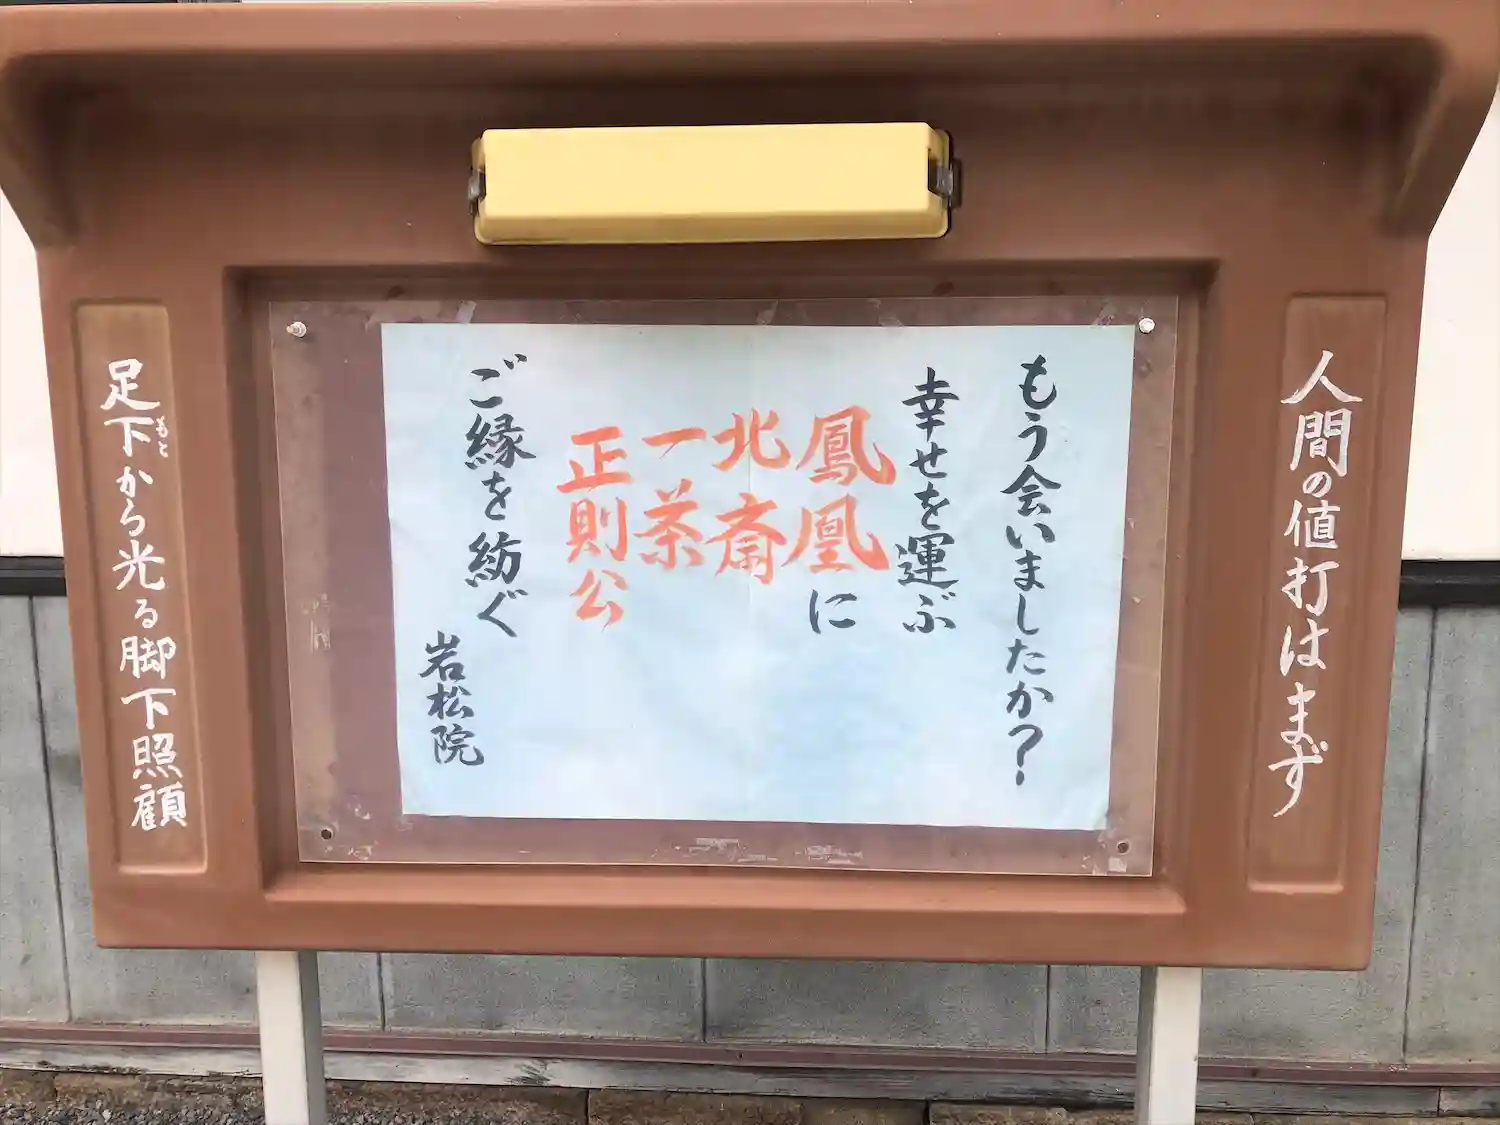 人間の値打はまず
もう会いましたか?
幸せを運ぶ
鳳凰に
北斎
一茶
正則公
ご縁を紡ぐ
岩松院
足下から光る脚下照顧
もと